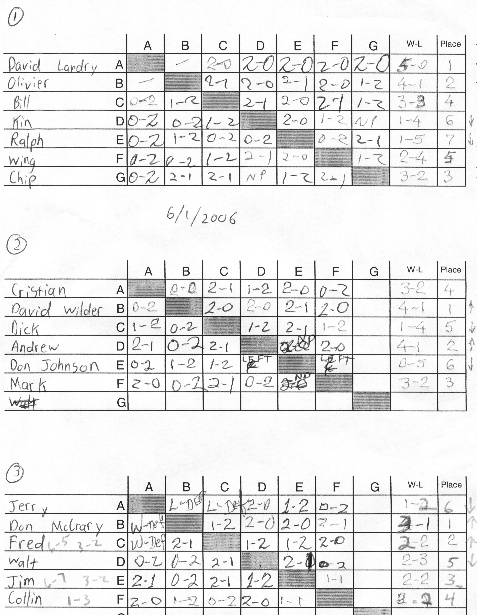 1
A B C D E F G W-L Place
David Landry A - 2-0 2-0 2-0 2-0 2-0 5-0 1
Olivier B - 2-1 2-0 2-1 2-0 1-2 4-1 2
Bill C 0-2 1-2 2-1 2-0 2-1 1-2 3-3 4
Kin D 0-2 0-2 1-2 2-0 1-2 NP 1-4 6 ↓
Ralph E 0-2 1-2 0-2 0-2 0-2 2-1 1-5 7 ↓
Wing F 0-2 0-2 1-2 2-1 2-0 1-2 2-4 5
Chip G 0-2 2-1 2-1 NP 1-2 2-1 3-2 3
6/1/2006
2
A B C D E F G W-L Place
Cristian A 2-1 1-2 2-0 0-2 3-2 4
David Wilder B 0-2 2-0 2-0 2-1 2-0 4-1 1 ↑
Dick C 1-2 0-2 1-2 2-1 1-2 1-4 5 ↓
Andrew D 2-1 0-2 2-1 NP 2-0 4-1 2 ↑
Don Johnson E 0-2 1-2 1-2 LEFT LEFT 0-5 6 ↓
Mark F 2-0 0-2 2-1 0-2 NP 3-2 3
G
3
A B C D E F G W-L Place
Jerry A L-Def L-Def 2-0 1-2 0-2 1-2 6 ↓
Don McCrary B W-Def 1-2 2-0 2-0 2-1 -1 1 ↑
Fred C W-Def 2-1 1-2 1-2 2-0 2-2 2
Walt D 0-2 0-2 2-1 2-1 0-2 2-3 5
Jim E 2-1 0-2 2-1 1-2 1-1 2-2 3
Collin 1-3 F 2-0 1-2 0-2 2-0 1-1 2-2 4